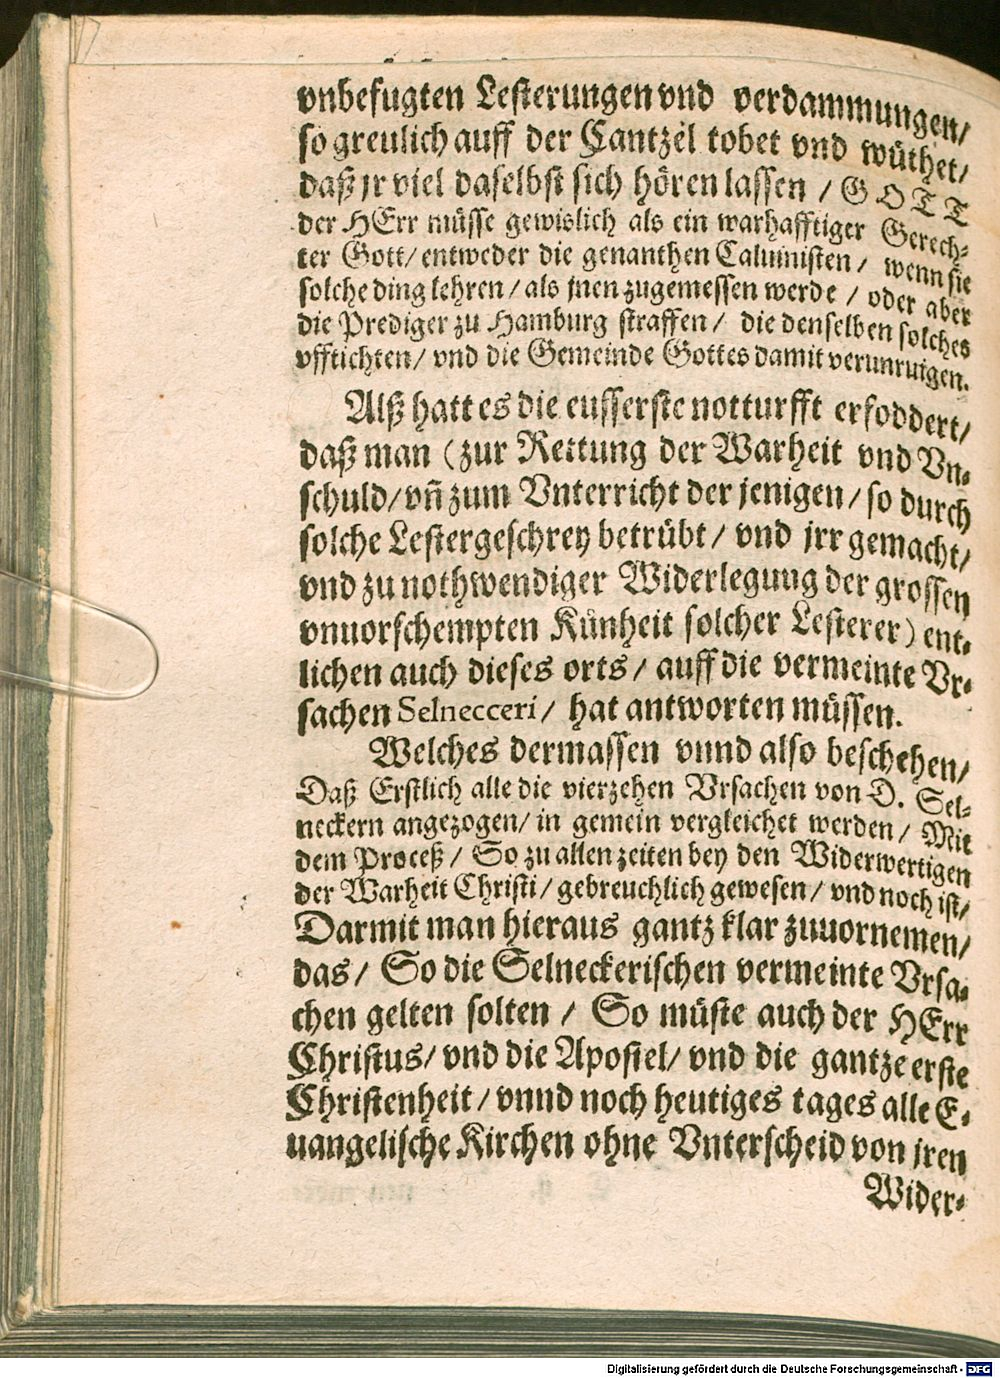 vnbefugten Lesterungen vnd verdammungen/
so greulich auff der Cantzel tobet vnd wüthet/
daß jr viel daselbst sich hören lassen / GOTT
der HErr müsse gewislich als ein warhafftiger Gerech-
ter Gott/ entweder die genanthen Caluinisten / wenn sie
solche ding lehren / als jnen zugemessen werde / oder aber
die Prediger zu Hamburg straffen / die denselben solches
vfftichten/ vnd die Gemeinde Gottes damit verunruigen.
Alß hatt es die eusserste notturfft erfoddert/
daß man (zur Rettung der Warheit vnd Vn-
schuld/ vñ zum Vnterricht der jenigen / so durch
solche Lestergeschrey betrübt / vnd jrr gemacht/
vnd zu nothwendiger Widerlegung der grossen
vnuorschempten Künheit solcher Lesterer) ent-
lichen auch dieses orts / auff die vermeinte Vr-
sachen Selnecceri / hat antworten müssen.
Welches dermassen vnnd also beschehen/
Daß Erstlich alle die vierzehen Vrsachen von D. Sel-
neckern angezogen/ in gemein vergleichet werden / Mit
dem Proceß / So zu allen zeiten bey den Widerwertigen
der Warheit Christi / gebreuchlich gewesen / vnd noch ist/
Darmit man hieraus gantz klar zuuornemen/
das / So die Selneckerischen vermeinte Vrsa-
chen gelten solten / So müste auch der HErr
Christus/ vnd die Apostel/ vnd die gantze erste
Christenheit / vnnd noch heutiges tages alle E-
uangelische Kirchen ohne Vnterscheid von jren
Wider-
Digitalisierung gefördert durch die Deutsche Forschungsgemeinschaft - DFG